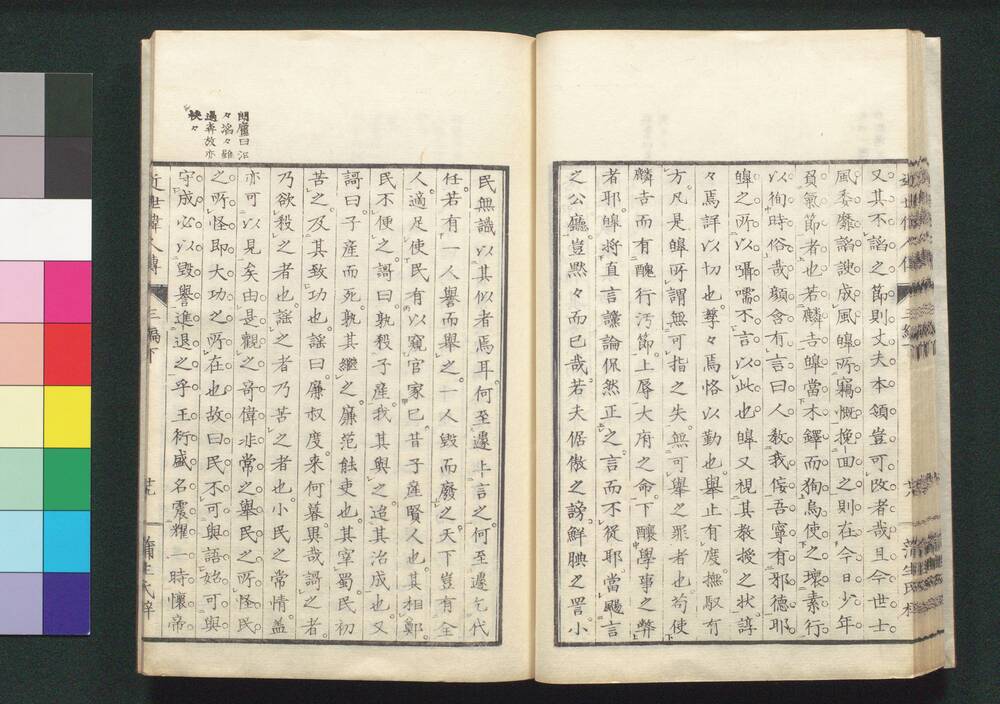 又其不諂之節則丈夫本領豈可改者哉且今世士
風委靡諂諛成風皥所竊慨挽回之則在今日少年
負氣節者也若麟吉皥當木鐸而狥烏使之壞素行
以徇時俗哉頤含有言曰人教我侫吾寧有邪德耶
皥之所以囁嚅不言以此也皥又視其教授之狀諄
々焉詳以切也孳々焉恪以勤也舉止有度撫馭有
方凡是皥所謂無可指之失無可舉之罪者也苟使
麟吉而有醜行汚節上辱大府之命下釀學事之弊
者耶皥將直言讜論侃然正之言而不從耶當颺言
之公廳豈黙々而已哉若夫倨傲之謗鮮腆之詈小
民無識以其似者焉耳何至遽上言之何至遽乞代
任若有一人譽而舉之一人毀而廢之天下豈有全
人適足使民有以窺官家已昔子産賢人也其相鄭
民不便之謌曰孰殺子産我其與之迨其治成也又
謌曰子産而死孰其繼之廉范能吏也其宰蜀民初
苦之及其致功也謡曰廉叔度来何暮異哉謌之者
乃欲殺之者也謡之者乃苦之者也小民之常情盖
亦可以見矣由是觀之奇偉非常之舉民之所怪民
之所怪即大功之所在也故曰民不可與語始可與
守成必以毀譽進退之乎王衍盛名震耀一時懷帝
朗廬曰沼
々滔々雖
過奔放亦
快々
近世偉人傳
三編下
蒲生氏梓